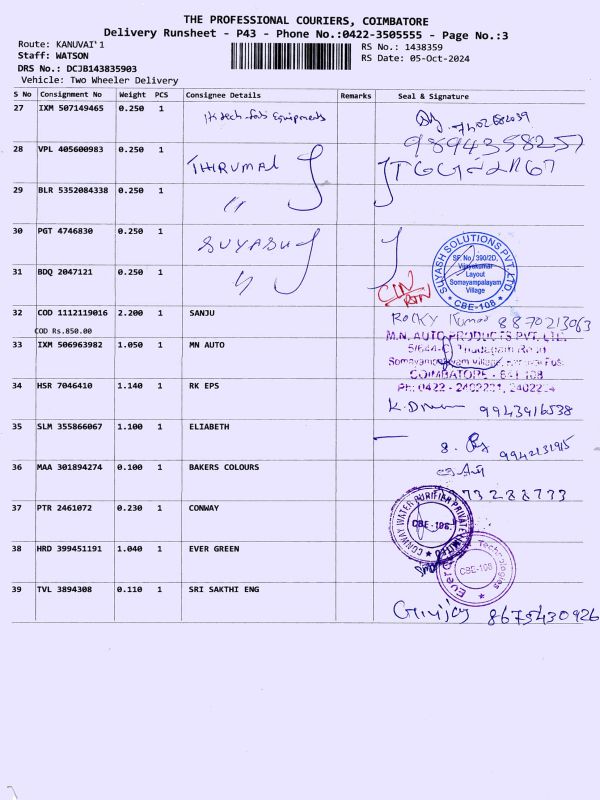 THE PROFESSIONAL COURIERS, COIMBATORE
Delivery Runsheet - P43 - Phone No.:0422-3505555 - Page No.:3
Route: KANUVAI'1
Staff: WATSON
DRS No.: DCJB143835903
Vehicle: Two Wheeler Delivery
RS No.: 1438359
RS Date: 05-Oct-2024
S No Consignment No Weight PCS Consignee Details Remarks Seal & Signature
27 IXM 507149465 0.250 1
28 VPL 405600983 0.250 1 THIRUMAL
29 BLR 5352084338 0.250 1 "
30 PGT 4746830 0.250 1 SUYASH
31 BDQ 2047121 0.250 1 "
SUYASH SOLUTIONS PVT. LTD.
SF. No. 390/2D,
Vijayakumar
Layout
Somayampalayam
Village
* CBE-108 *
32 COD 1112119016 2.200 1 SANJU Rocky Kumar 8870213063
COD Rs.850.00
33 IXM 506963982 1.050 1 MN AUTO
M.N. AUTO PRODUCTS PVT. LTD.
COIMBATORE - 641 108
34 HSR 7046410 1.140 1 RK EPS 9943916538
35 SLM 355866067 1.100 1 ELIABETH 9942131915
36 MAA 301894274 0.100 1 BAKERS COLOURS
37 PTR 2461072 0.230 1 CONWAY
CONWAY WATER PURIFIER PRIVATE LIMITED
CBE-108.
38 HRD 399451191 1.040 1 EVER GREEN
Technologies
CBE-108
39 TVL 3894308 0.110 1 SRI SAKTHI ENG 8675430926